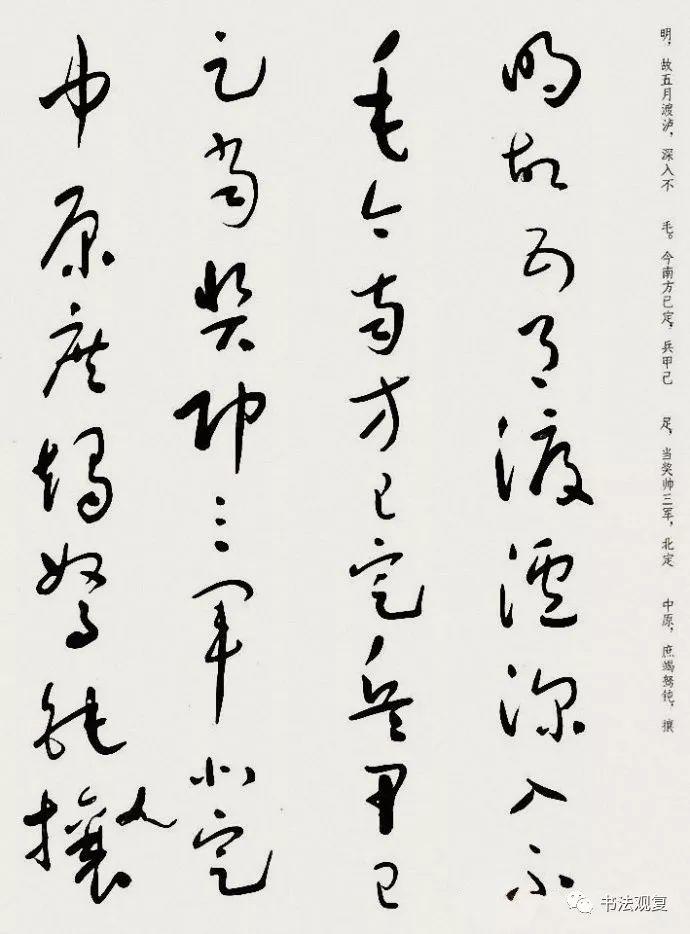 明，故五月渡泸，深入不
毛。今南方已定，兵甲己
足，当奖帅三军，北定
中原，庶竭驽钝，攘
明故五月渡瀘深入不
毛今南方已定兵甲已
足當獎帥三軍北定
中原庶竭駑鈍攘
书法观复